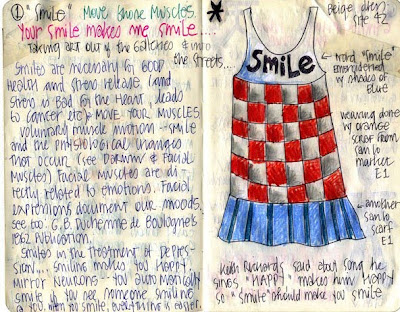 ① "Smile" Move those Muscles.
Your smile makes me smile....
Taking art out of the galleries & into
the streets...
Smiles are necessary for good
health and stress release (and
stress is bad for the heart, leads
to cancer etc) MOVE YOUR MUSCLES
voluntary muscle motion - smile
and the physiological changes
that occur (see Darwin & Facial
Muscles) Facial muscles are di
rectly related to emotions. Facial
expressions document our moods.
see too: G.B. Duchenne de Boulogne's
1862 Publication.
Smiles in the treatment of Depres-
sion.... smiling makes you happy.
Mirror Neurons - you automatically
smile if you see someone smiling
@ you. when you smile, everything is easier.
*
Beige dress
size 42
SMiLe
word "Smile"
embroidered
w/ shades of
blue
weaving done
w/ orange
scarf from
santo
market
E1
another
santo
scarf
E1
Keith Richards said about song he
sings "HAPPY" makes him Happy
so "Smile" should make you smile